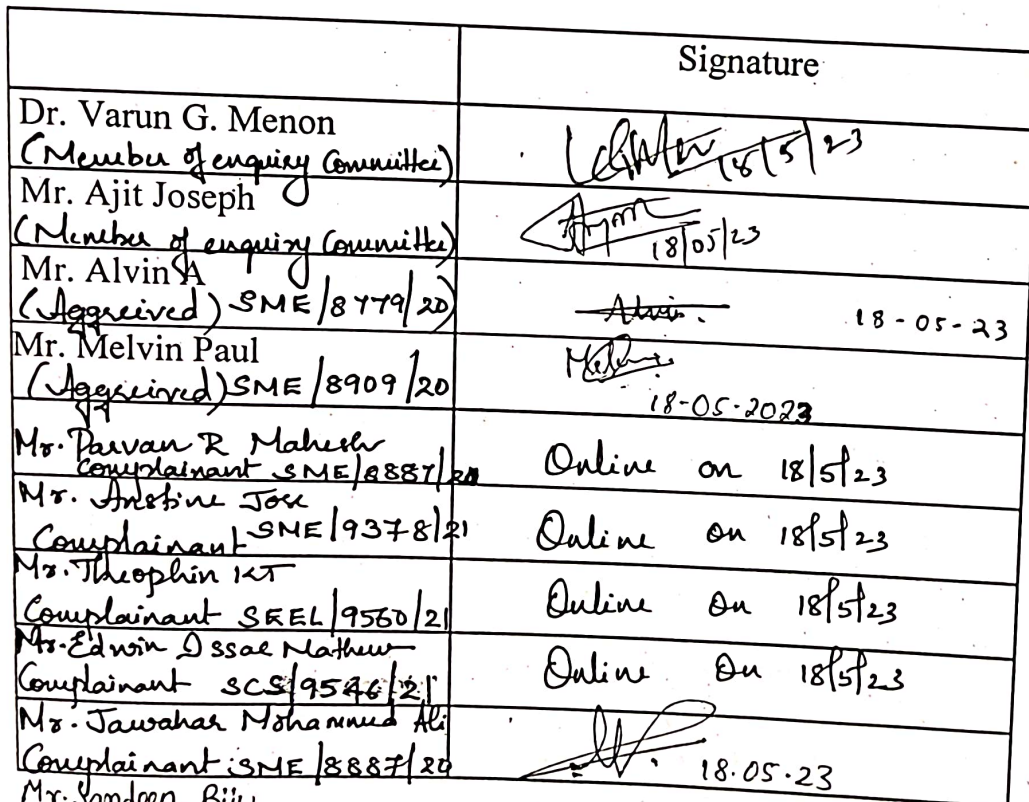 Signature
Dr. Varun G. Menon
(Member of enquiry Committee)
18/5/23
Mr. Ajit Joseph
(Member of enquiry Committee)
18/05/23
Mr. Alvin A
(Aggreived) SME/8779/20)
Alvin. 18-05-23
Mr. Melvin Paul
(Aggreived) SME/8909/20
18-05-2023
Mr. Parvan R Mahesh
Complainant SME/8887/20
Online on 18/5/23
Mr. Anstine Jose
Complainant SME/9378/21
Online on 18/5/23
Mr. Theophin KT
Complainant SEEL/9560/21
Online on 18/5/23
Mr. Edwin Issac Mathew
Complainant SCS/9546/21
Online on 18/5/23
Mr. Jawahar Mohammed Ali
Complainant SME/8887/20
18.05.23
Mr. Sandeep Biju